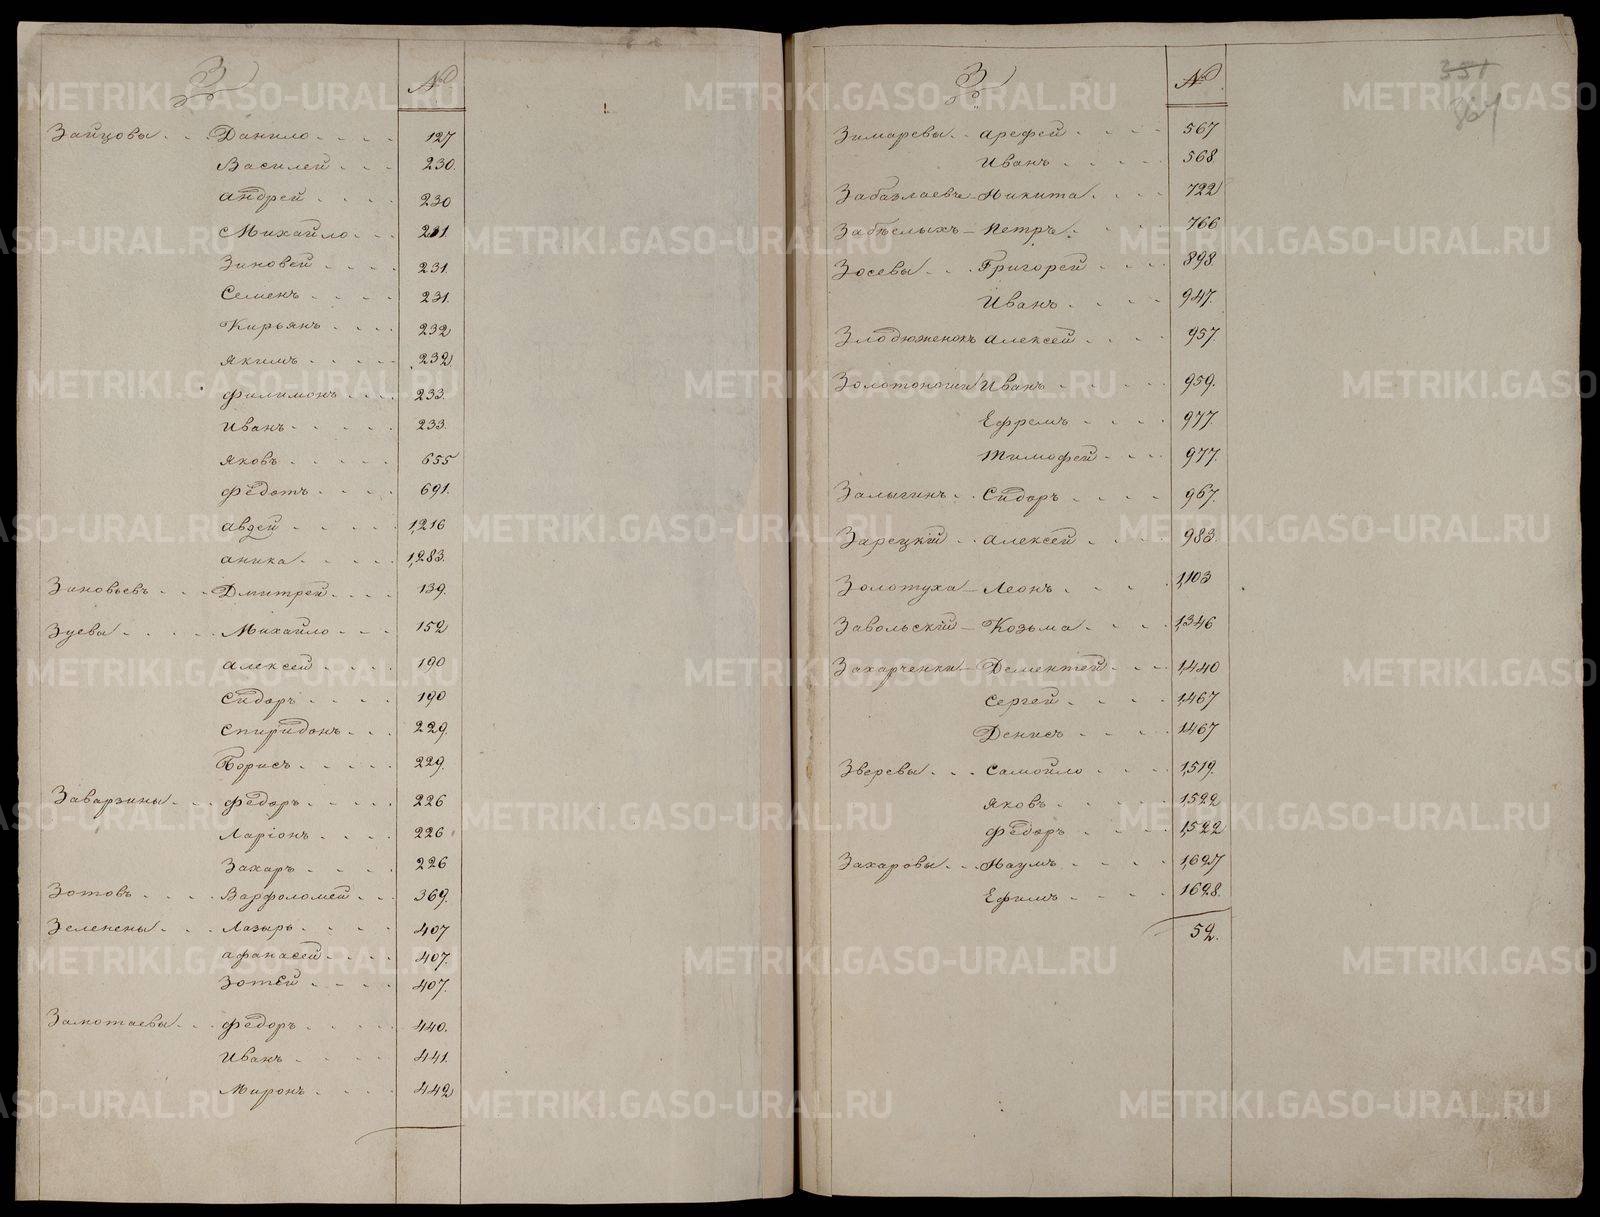 З №
Зайцовы Данило 127
Василей 230.
Андрей 230
Михайло 231.
Зиновей 231.
Семенъ 231.
Кирьянъ 232
Якимъ 232
Филимонъ 233.
Иванъ 233.
Яковъ 655
Федотъ 691.
Авдей 1,216
Аника 1,283.
Зиновьевъ Дмитрей 139.
Зуевы Михайло 152
Алексей 190
Сидоръ 190
Спиридонъ 229.
Борисъ 229.
Заварзины Федоръ 226
Ларіонъ 226
Захаръ 226
Зотовъ Варфоломей 369.
Зеленены Лазырь 407
Афанасей 407.
Зотей 407.
Замотаевы Федоръ 440.
Иванъ 441.
Миронъ 442
З №
351
367
Зимаревы Арефей 567
Иванъ 568.
Забазлаевъ Никита 722
Забѣлыхъ Петръ 766
Зосевы Григорей 898.
Иванъ 947.
Злодюженокъ Алексей 957.
Золотоноги Иванъ 959.
Ефремъ 977.
Тимофей 977.
Залыгинъ Сидоръ 967.
Зарецкій Алексей 983.
Золотуха Леонъ 1,103
Завольскій Козьма 1,346
Захарченки Дементей 1,440
Сергей 1,467
Денисъ 1,467
Зверевы Самойло 1,519.
Яковъ 1,522
Федоръ 1,522
Захаровы Наумъ 1,627
Ефимъ 1628.
52.
METRIKI.GASO-URAL.RU